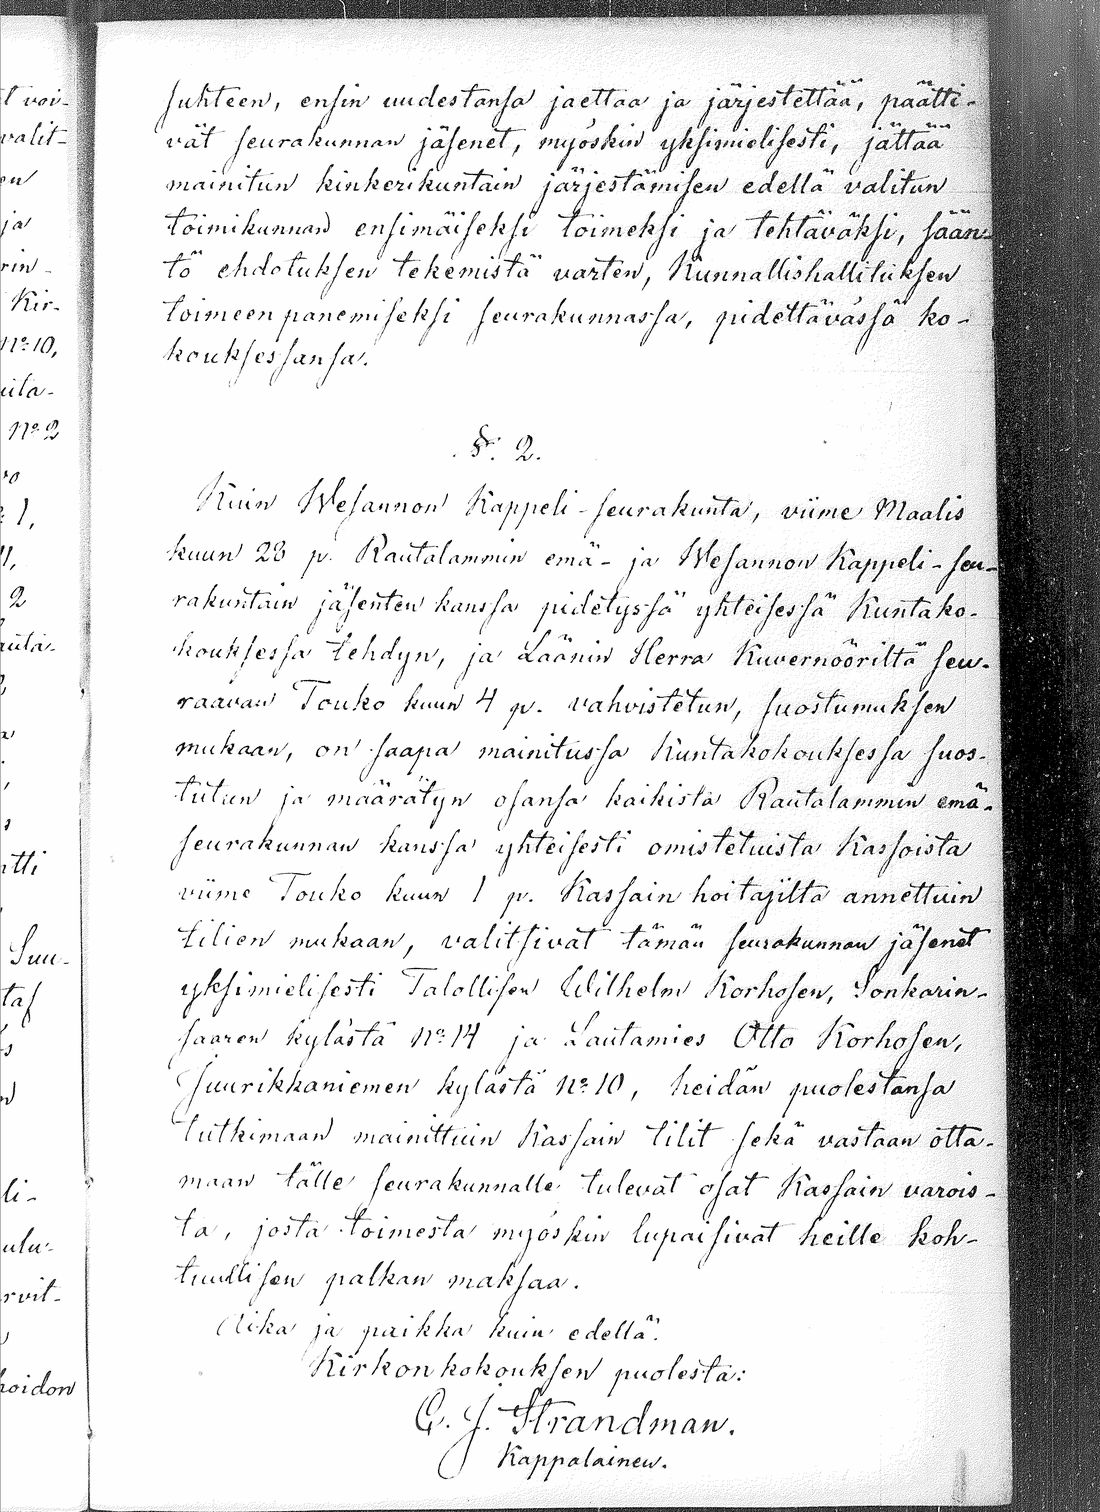 t voi-
valit-
en
ja
rin-
Kir-
No 10,
uita-
No 2
ro
1,
11,
2
auta-
ntti
Suu-
taf
li-
ulu-
rvit-
hoidon
suhteen, ensin uudestansa jaettaa ja järjestettää, päätti-
vät seurakunnan jäsenet, myöskin yksimielisesti, jättää
mainitun kinkerikuntain järjestämisen edellä valitun
toimikunnan ensimäiseksi toimeksi ja tehtäväksi, sään-
tö ehdotuksen tekemistä varten, Kunnallishallituksen
toimeen panemiseksi seurakunnassa, pidettävässä ko-
kouksessansa.
§. 2.
Kuin Wesannon Kappeli-seurakunta, viime Maalis
kuun 28 p. Rautalammin emä- ja Wesannon Kappeli-seu-
rakuntain jäsenten kanssa pidetyssä yhteisessä Kuntako-
kouksessa tehdyn, ja Läänin Herra Kuvernööriltä seu-
raavan Touko kuun 4 p. vahvistetun, suostumuksen
mukaan, on saapa mainitussa Kuntakokouksessa suos-
tutun ja määrätyn osansa kaikista Rautalammin emä-
seurakunnan kanssa yhteisesti omistetuista Kassoista
viime Touko kuun 1 p. Kassain hoitajilta annettuin
tilien mukaan, valitsivat tämän seurakunnan jäsenet
yksimielisesti Talollisen Wilhelm Korhosen, Sonkarin-
saaren kylästä No 14 ja Lautamies Otto Korhosen,
Juurikkaniemen kylästä No 10, heidän puolestansa
tutkimaan mainittuin Kassain tilit sekä vastaan otta-
maan tälle seurakunnalle tulevat osat Kassain varois-
ta, josta toimesta myöskin lupaisivat heille koh-
tuullisen palkan maksaa.
Aika ja paikka kuin edellä.
Kirkonkokouksen puolesta:
C. J. Strandman.
Kappalainen.